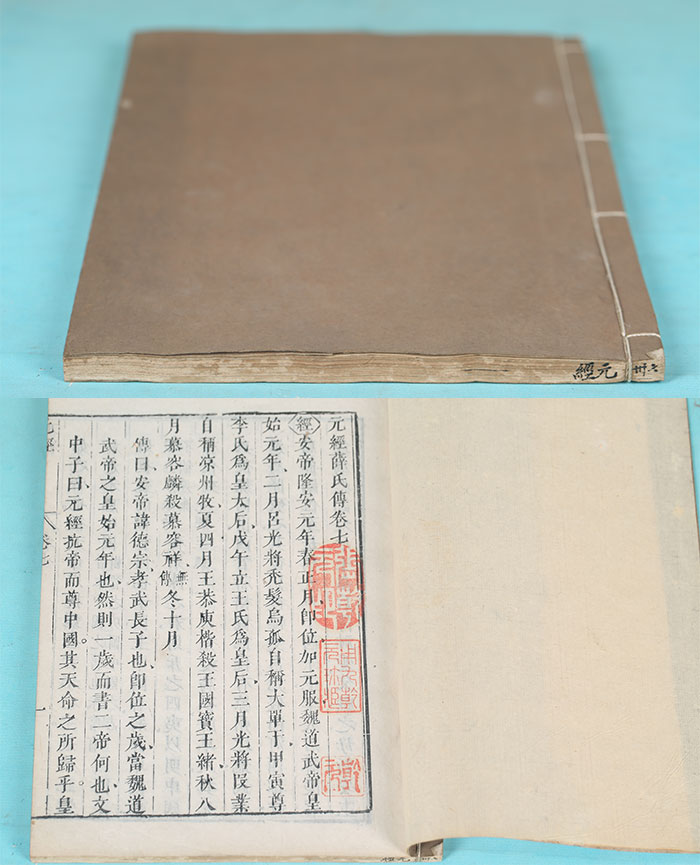 元經
元經薛氏傳卷七
經安帝隆安元年春正月卽位加元服魏道武帝皇
始元年二月呂光將禿髮烏孤自稱大單于甲寅尊
李氏爲皇太后、戊午立王氏爲皇后、三月光將段業
自稱凉州牧、夏四月王恭庾楷殺王國寶王緒、秋八
月慕容麟殺慕容祥無傳冬十月
傳曰安帝諱德宗、孝武長子也、卽位之歲、當魏道
武帝之皇始元年也、然則一歲而書二帝何也、文
中子曰、元經抗帝而尊中國。其天命之所歸乎、皇
元經
卷七
一